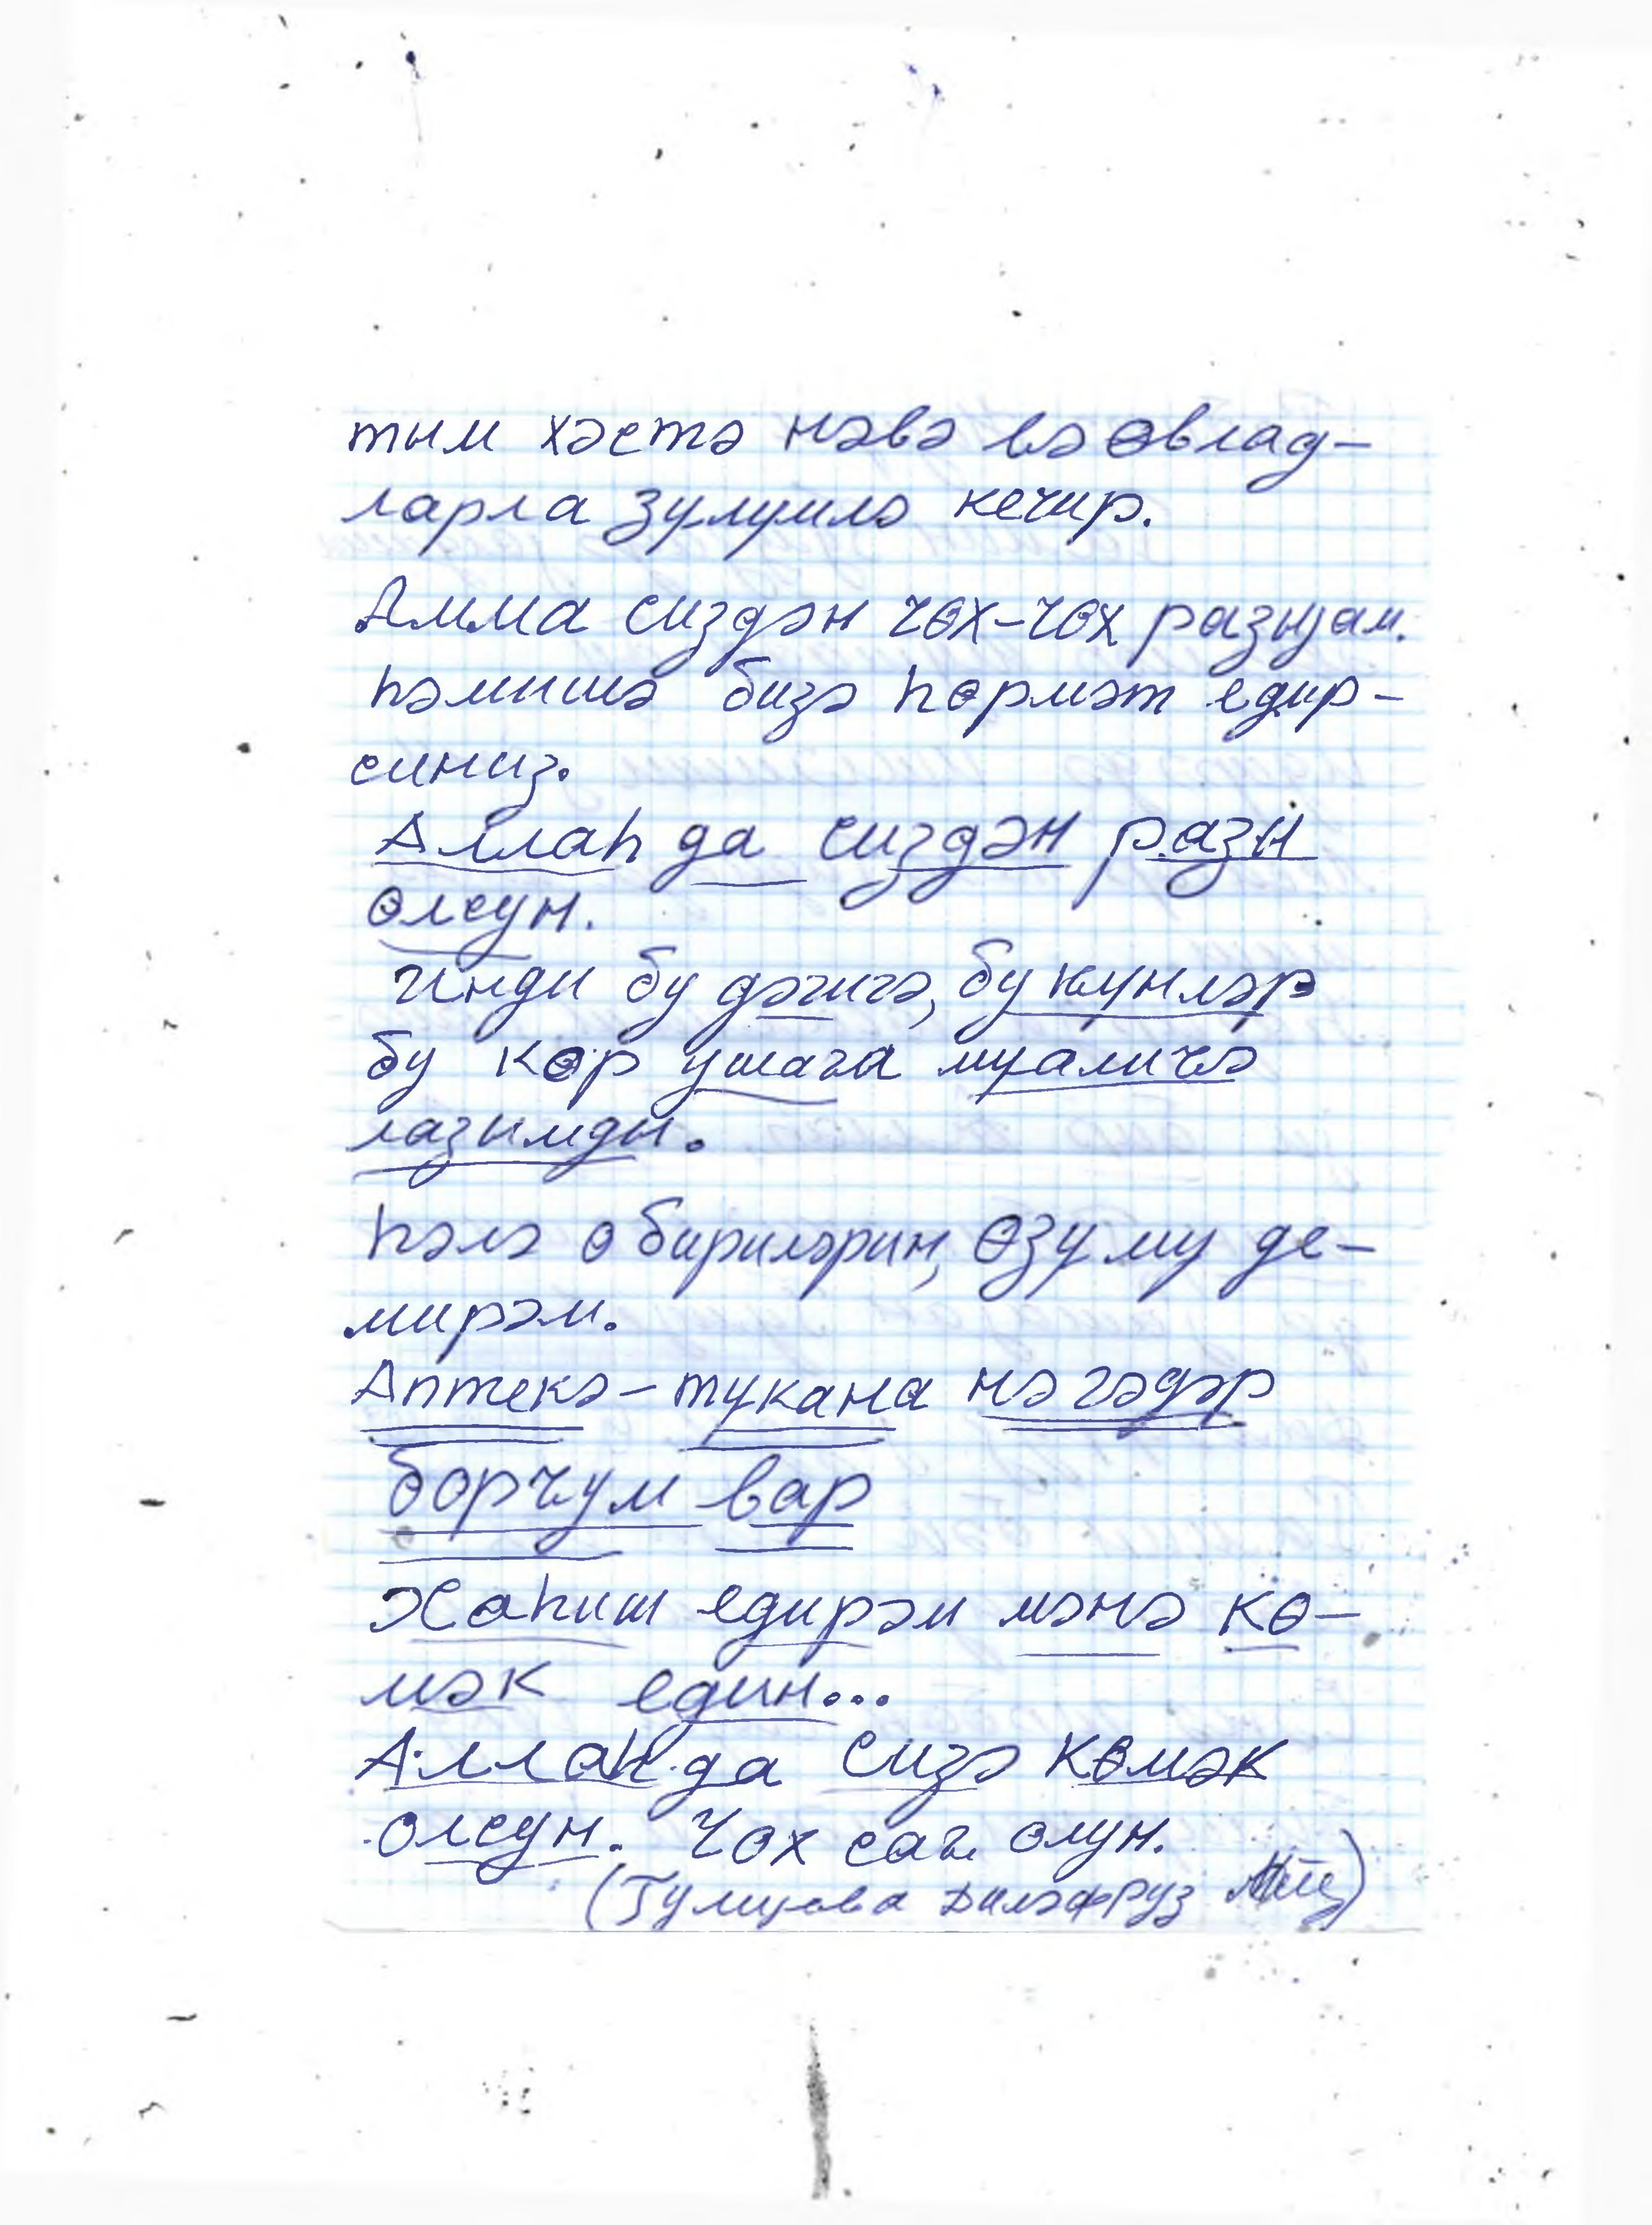 тым хәстә нәвә вә өвлад-
ларла зулумлә кечир.
Амма сиздән чох-чох разыјам.
һәмишә бизә һөрмәт едир-
синиз.
Аллаһ да сиздән разы
олсун.
Инди бу дәгигә, бу күнләр
бу көр ушага муаличә
лазымды.
һәлә о бириләрин, өзүмү де-
мирәм.
Аптекә-тукана нә гәдәр
борчум вар
Хаһиш едирәм мәнә кө-
мәк един...
Аллаһ да сизә көмәк
олсун. Чох сағ олун.
(Диләфруз